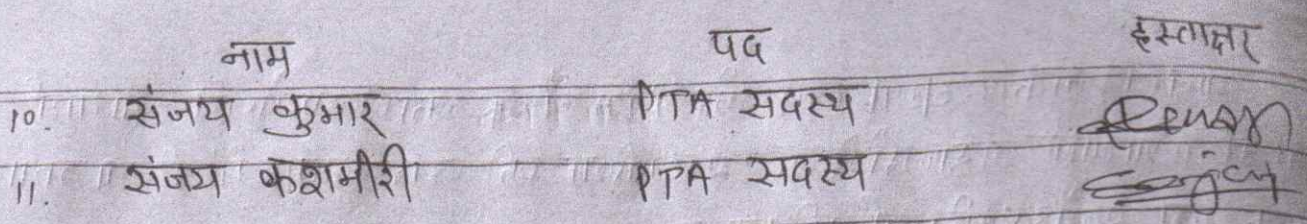 नाम पद हस्ताक्षर
10. संजय कुमार PTA सदस्य
11. संजय कशमीरी PTA सदस्य